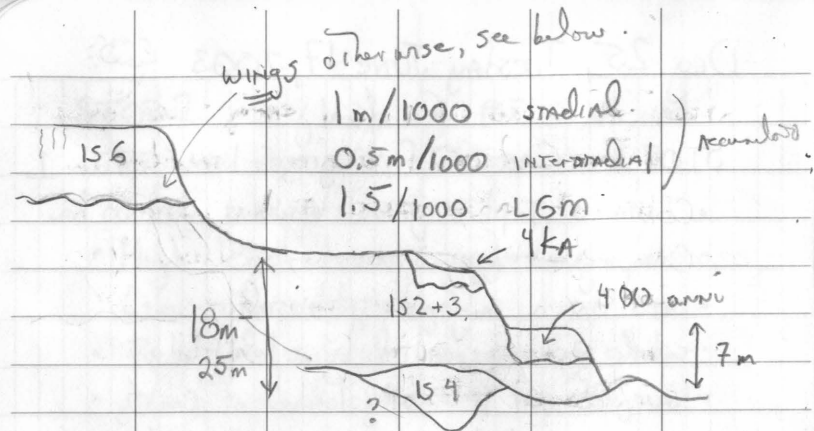 otherwise, see below.
WINGS
1m/1000 STADIAL
0.5m/1000 INTERSTADIAL
1.5/1000 LGM
IS6
4KA
IS2+3
400 anni
18m
25m
7m
IS4
?